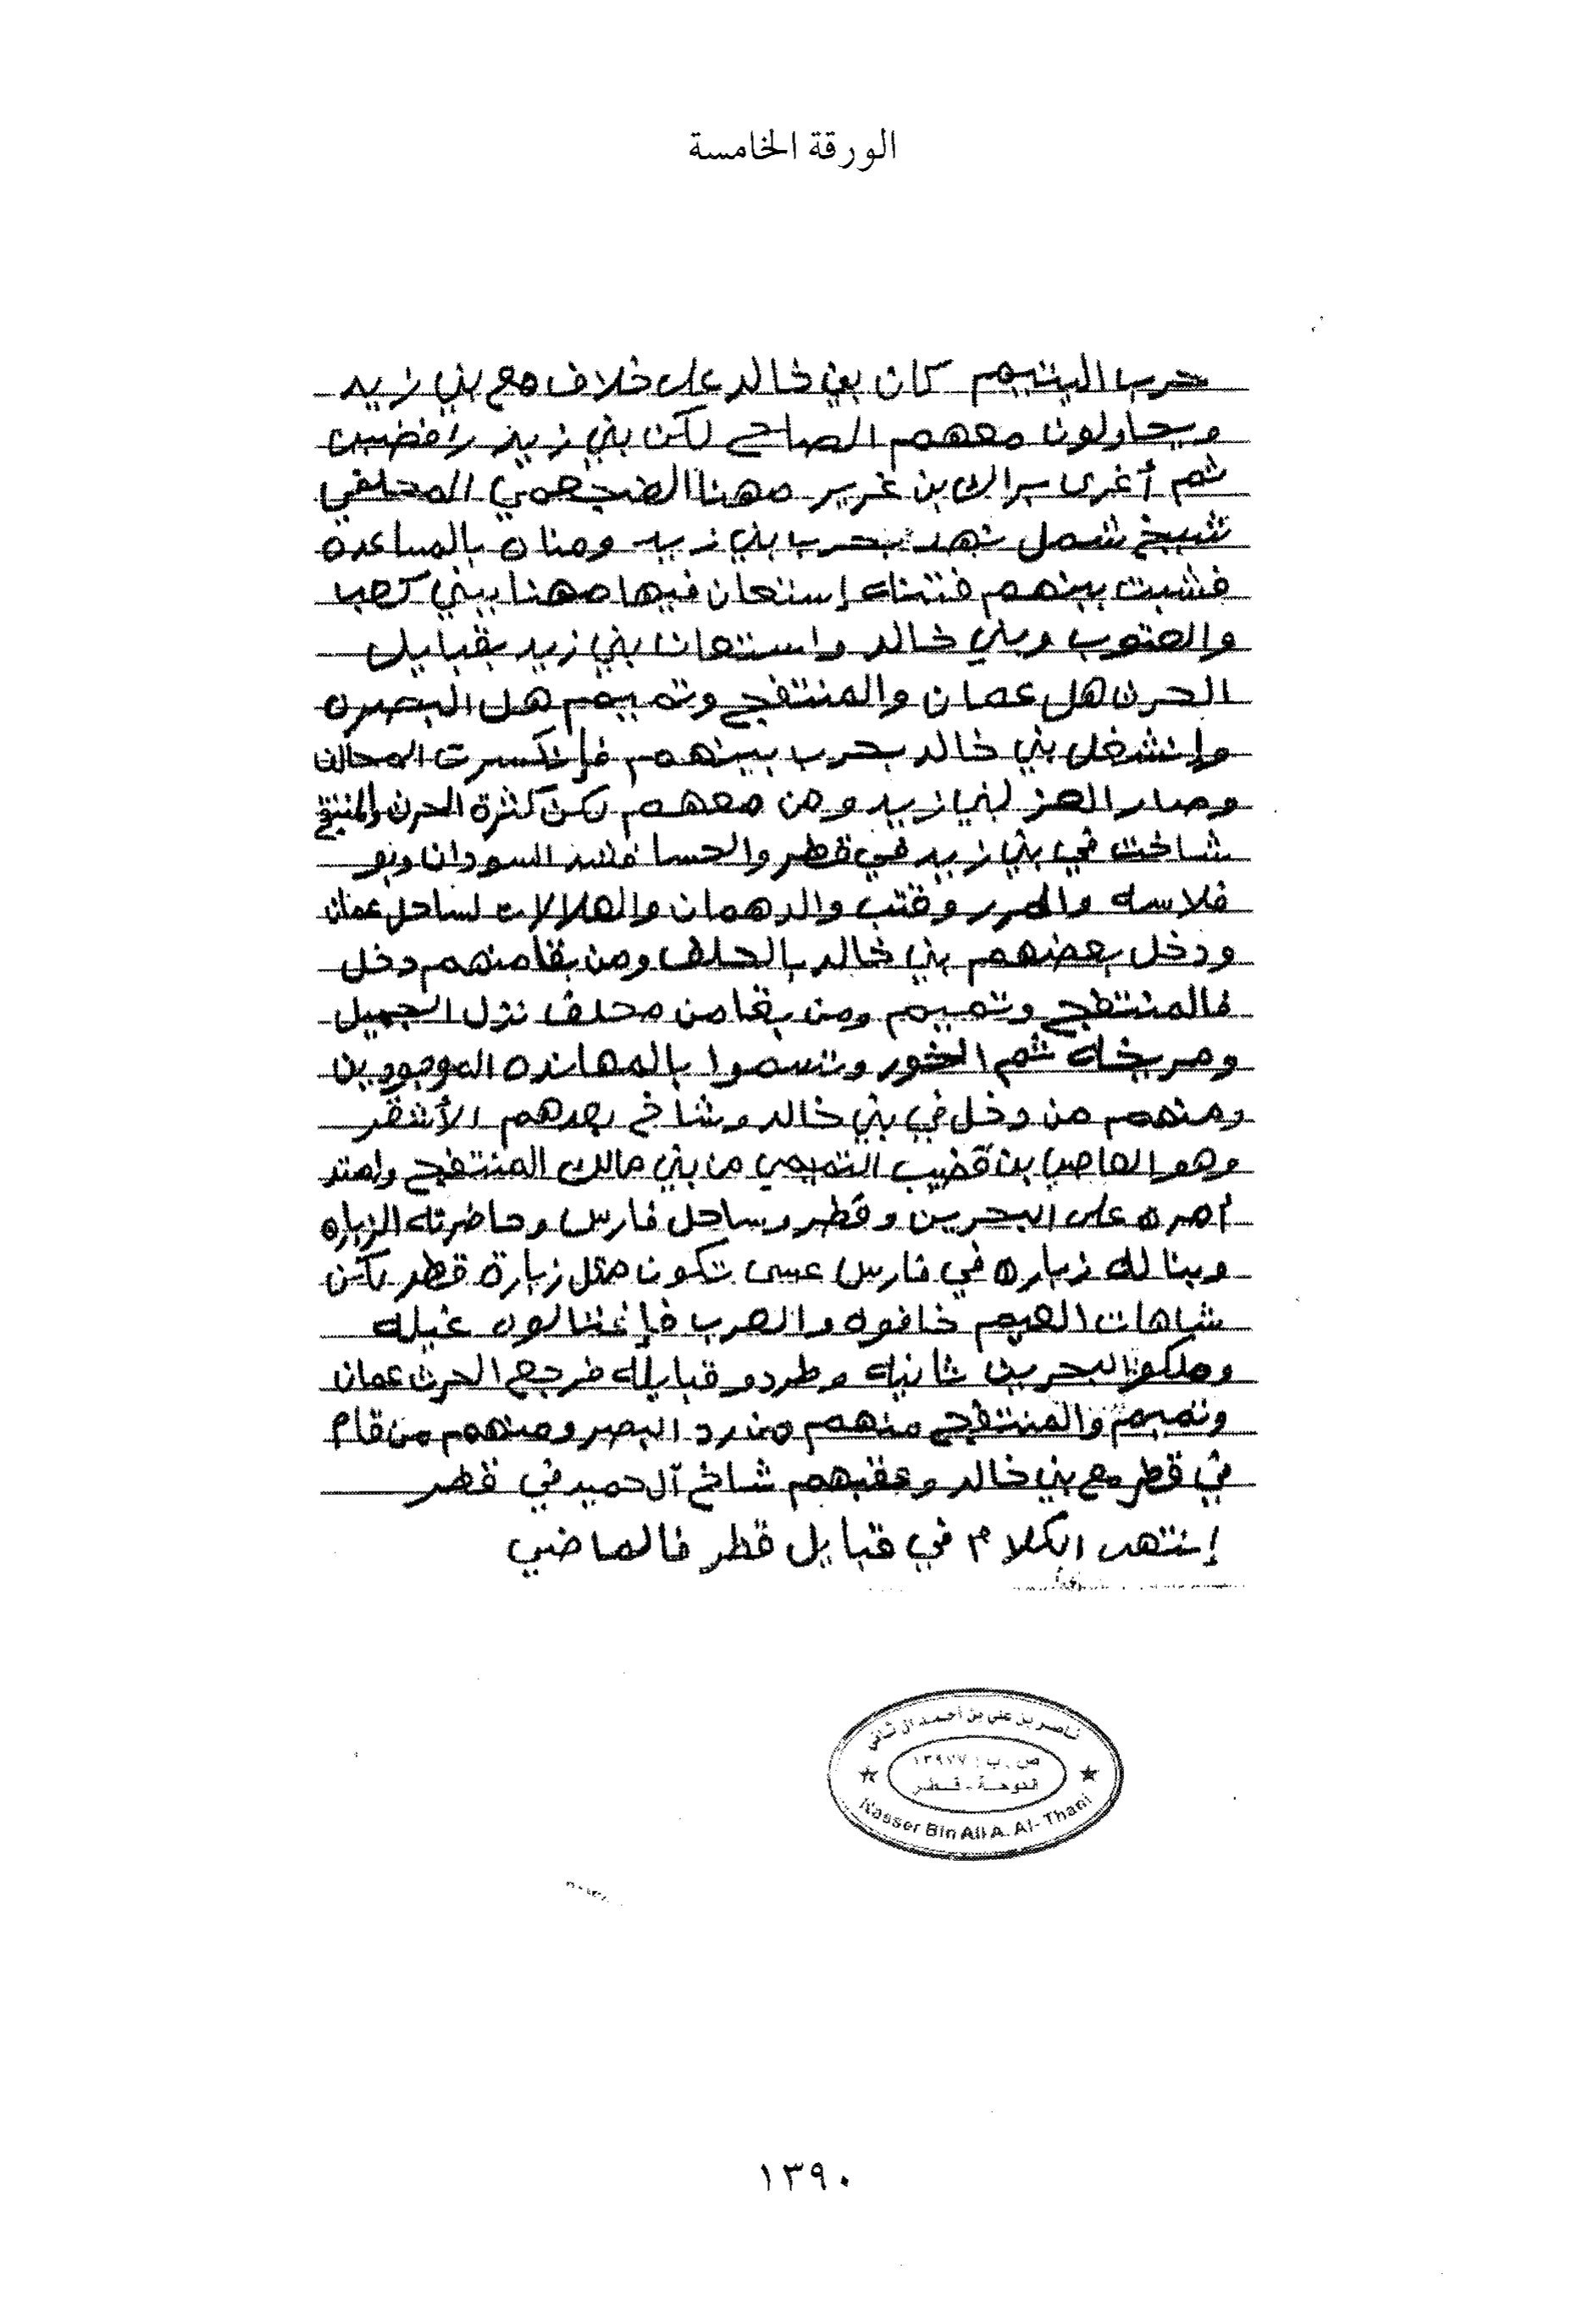 الورقة الخامسة
حرب اليتيم كان بني خالد على خلاف مع بني زيد
ويحاولون معهم الصلح لكن بني زيد رافضين
ثم أغرى براك بن غرير مهنا الضجعمي المحلفي
شيخ شمل نهد بحرب بني زيد ومناه بالمساعده
فشبت بينهم فتنتاه إستعان فيها مهنا ببني كعب
والعتوب وبني خالد واستعان بني زيد بقبايل
الحرث هل عمان والمنتفج وتميم هل البصره
وإنشغل بني خالد بحرب بينهم فإنكسرت المحالف
وصار العز لبني زيد ومن معهم لكن كثرة الحرث والمنتفج
شاخت في بني زيد في قطر والحسا فشد السودان وبو
فلاسه والمرر وقتب والدهمان والهلالات لساحل عمان
ودخل بعضهم بني خالد بالحلف ومن بقا منهم دخل
فالمنتفج وتميم ومن بقا من محلف نزل الجميل
ومريخه ثم الخور وتسموا بالمهانده الموجودين
ومنهم من دخل في بني خالد وشاخ بعدهم الأشقر
وهو العاصي بن قضيب التميمي من بني مالك المنتفج وامتد
أمره على البحرين وقطر وساحل فارس وحاضرته الزباره
وبنا له زباره في فارس عسى تكون مثل زبارة قطر لكن
شاهات العيم خافوه والعرب فإغتالوه غيله
وملكوا البحرين ثانيه وطردو قبايله فرجع الحرث عمان
وتميم والمنتفج منهم من رد البصر ومنهم من قام
في قطر مع بني خالد وعقبهم شاخ آل حميد في قطر
إنتهى الكلام في قبايل قطر فالماضي
ناصر بن علي بن أحمد آل ثاني
ص.ب : ١٣٩٧٧
الدوحة - قطر
Nasser Bin Ali A. Al-Thani
١٣٩٠